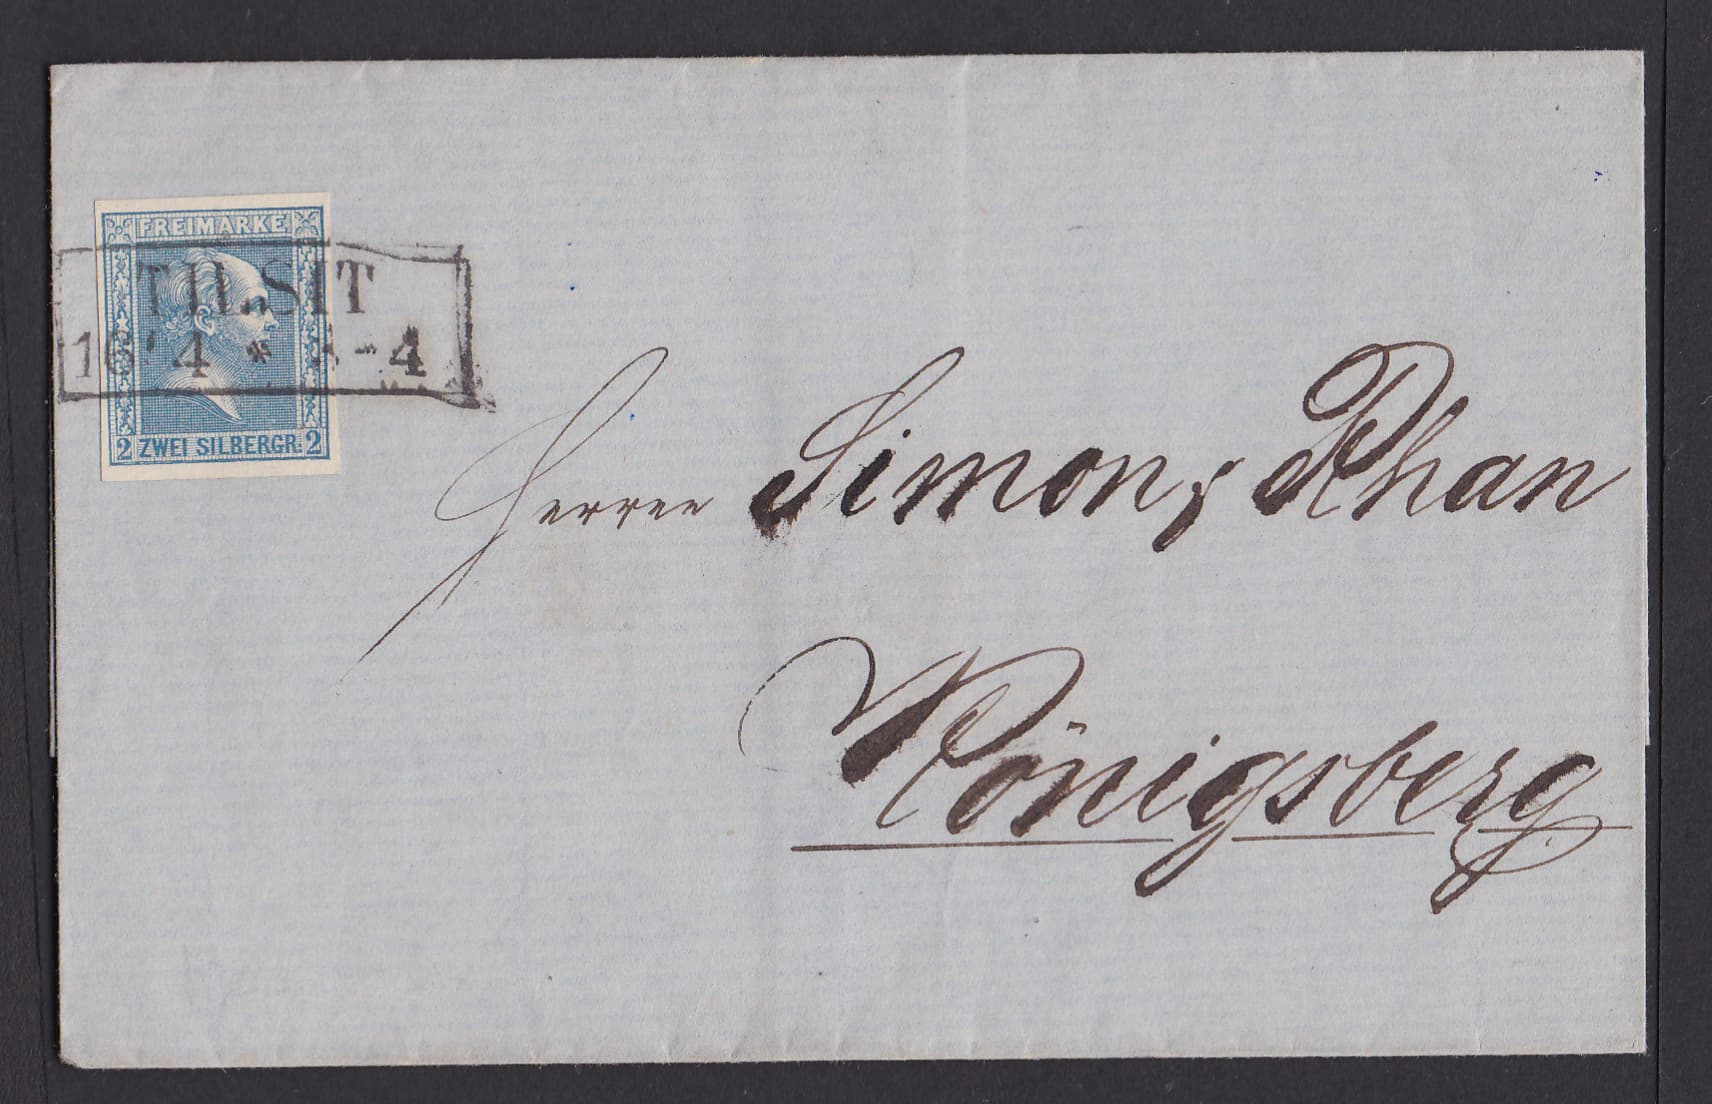 FREIMARKE
TILSIT
16 4 * -4
2 ZWEI SILBERGR. 2
Herren Simon &
Königsberg